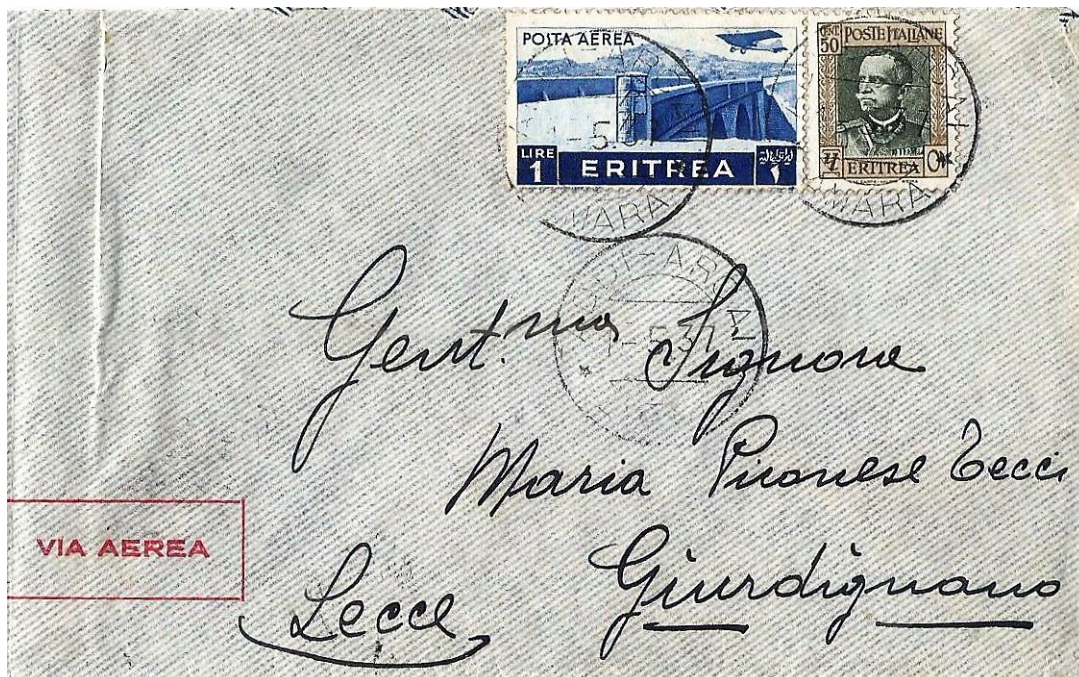 POSTA AEREA
LIRE
1
ERITREA
١
CENT
50
POSTE ITALIANE
ERITREA
Gent.ma Signora
Maria Piionese Tecci
VIA AEREA
Giurdignano
Lecce